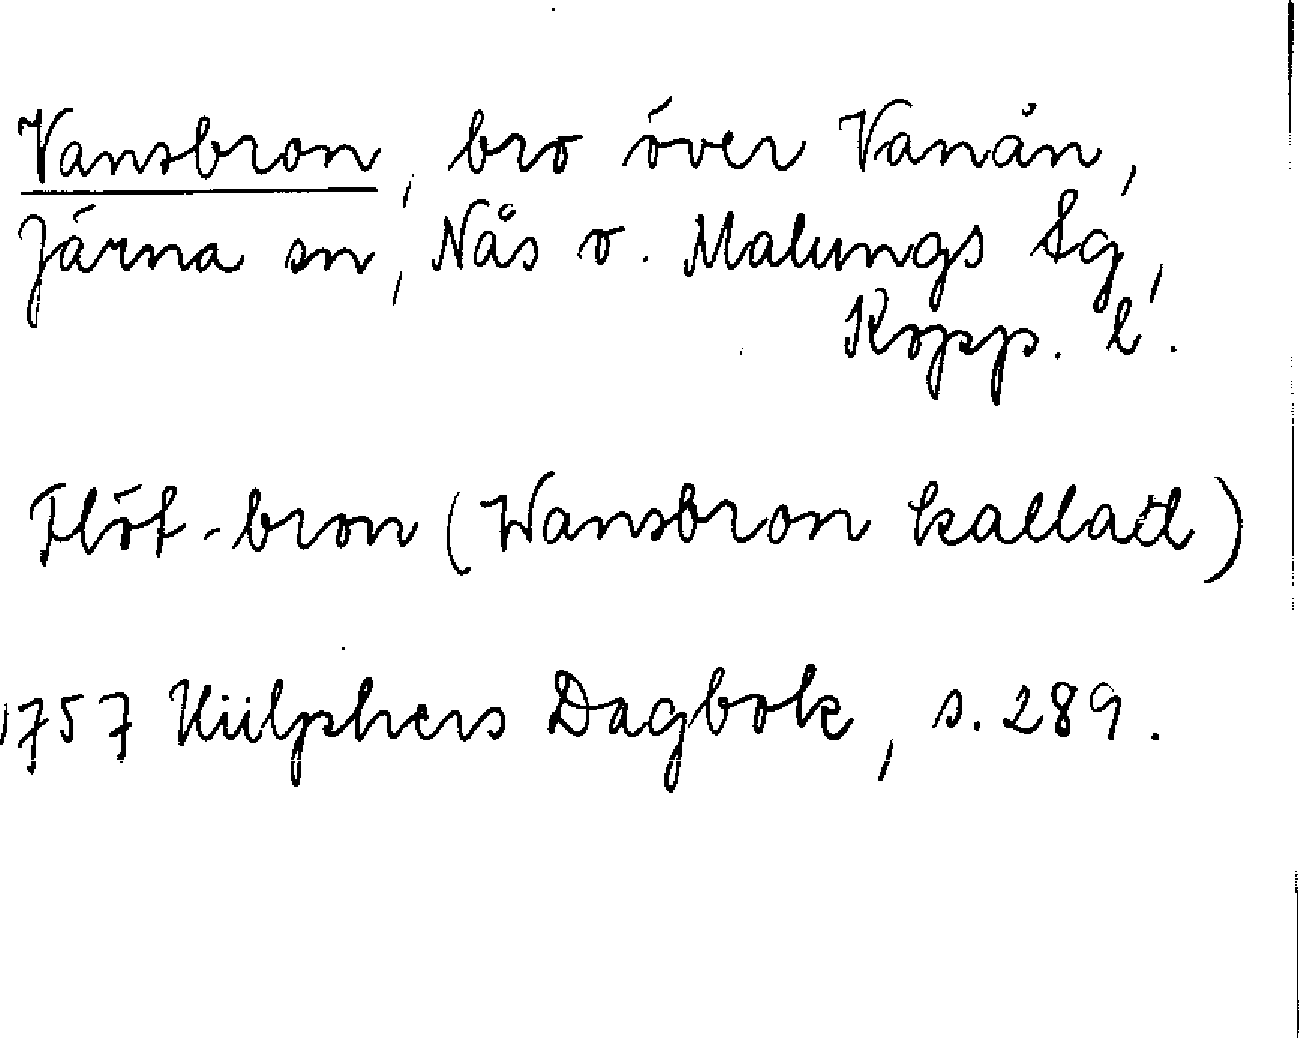 Vansbron, bro över Vanån,
Järna sn, Nås o. Malungs Lg,
Kopp. l.
Flöt-bron (Wansbron kallad)
1757 Hülphers Dagbok, s. 289.